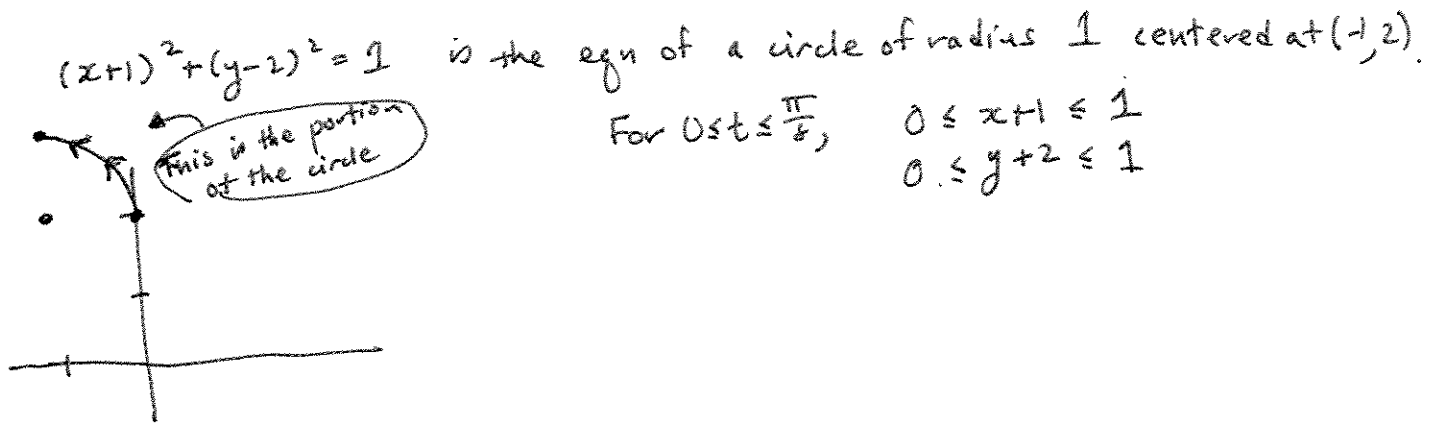 (x+1)²+(y-2)² = 1 is the eqn of a circle of radius 1 centered at (-1,2).
This is the portion
of the circle
For 0≤t≤π/8, 0 ≤ x+1 ≤ 1
0 ≤ y+2 ≤ 1